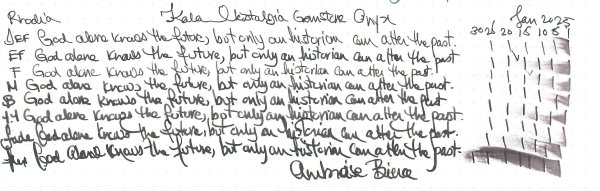 Rhodia Kala Nostalgia Gemstone Onyx Jan 2025
30 25 20 15 10 5 1
JEF God alone knows the future, but only an historian can alter the past.
EF God alone knows the future, but only an historian can alter the past
F God alone knows the future, but only an historian can alter the past.
M God alone knows the future, but only an historian can alter the past.
B God alone knows the future, but only an historian can alter the past.
God alone knows the future, but only an historian can alter the past.
fude God alone knows the future, but only an historian can alter the past.
God alone knows the future, but only an historian can alter the past.
Ambrose Bierce